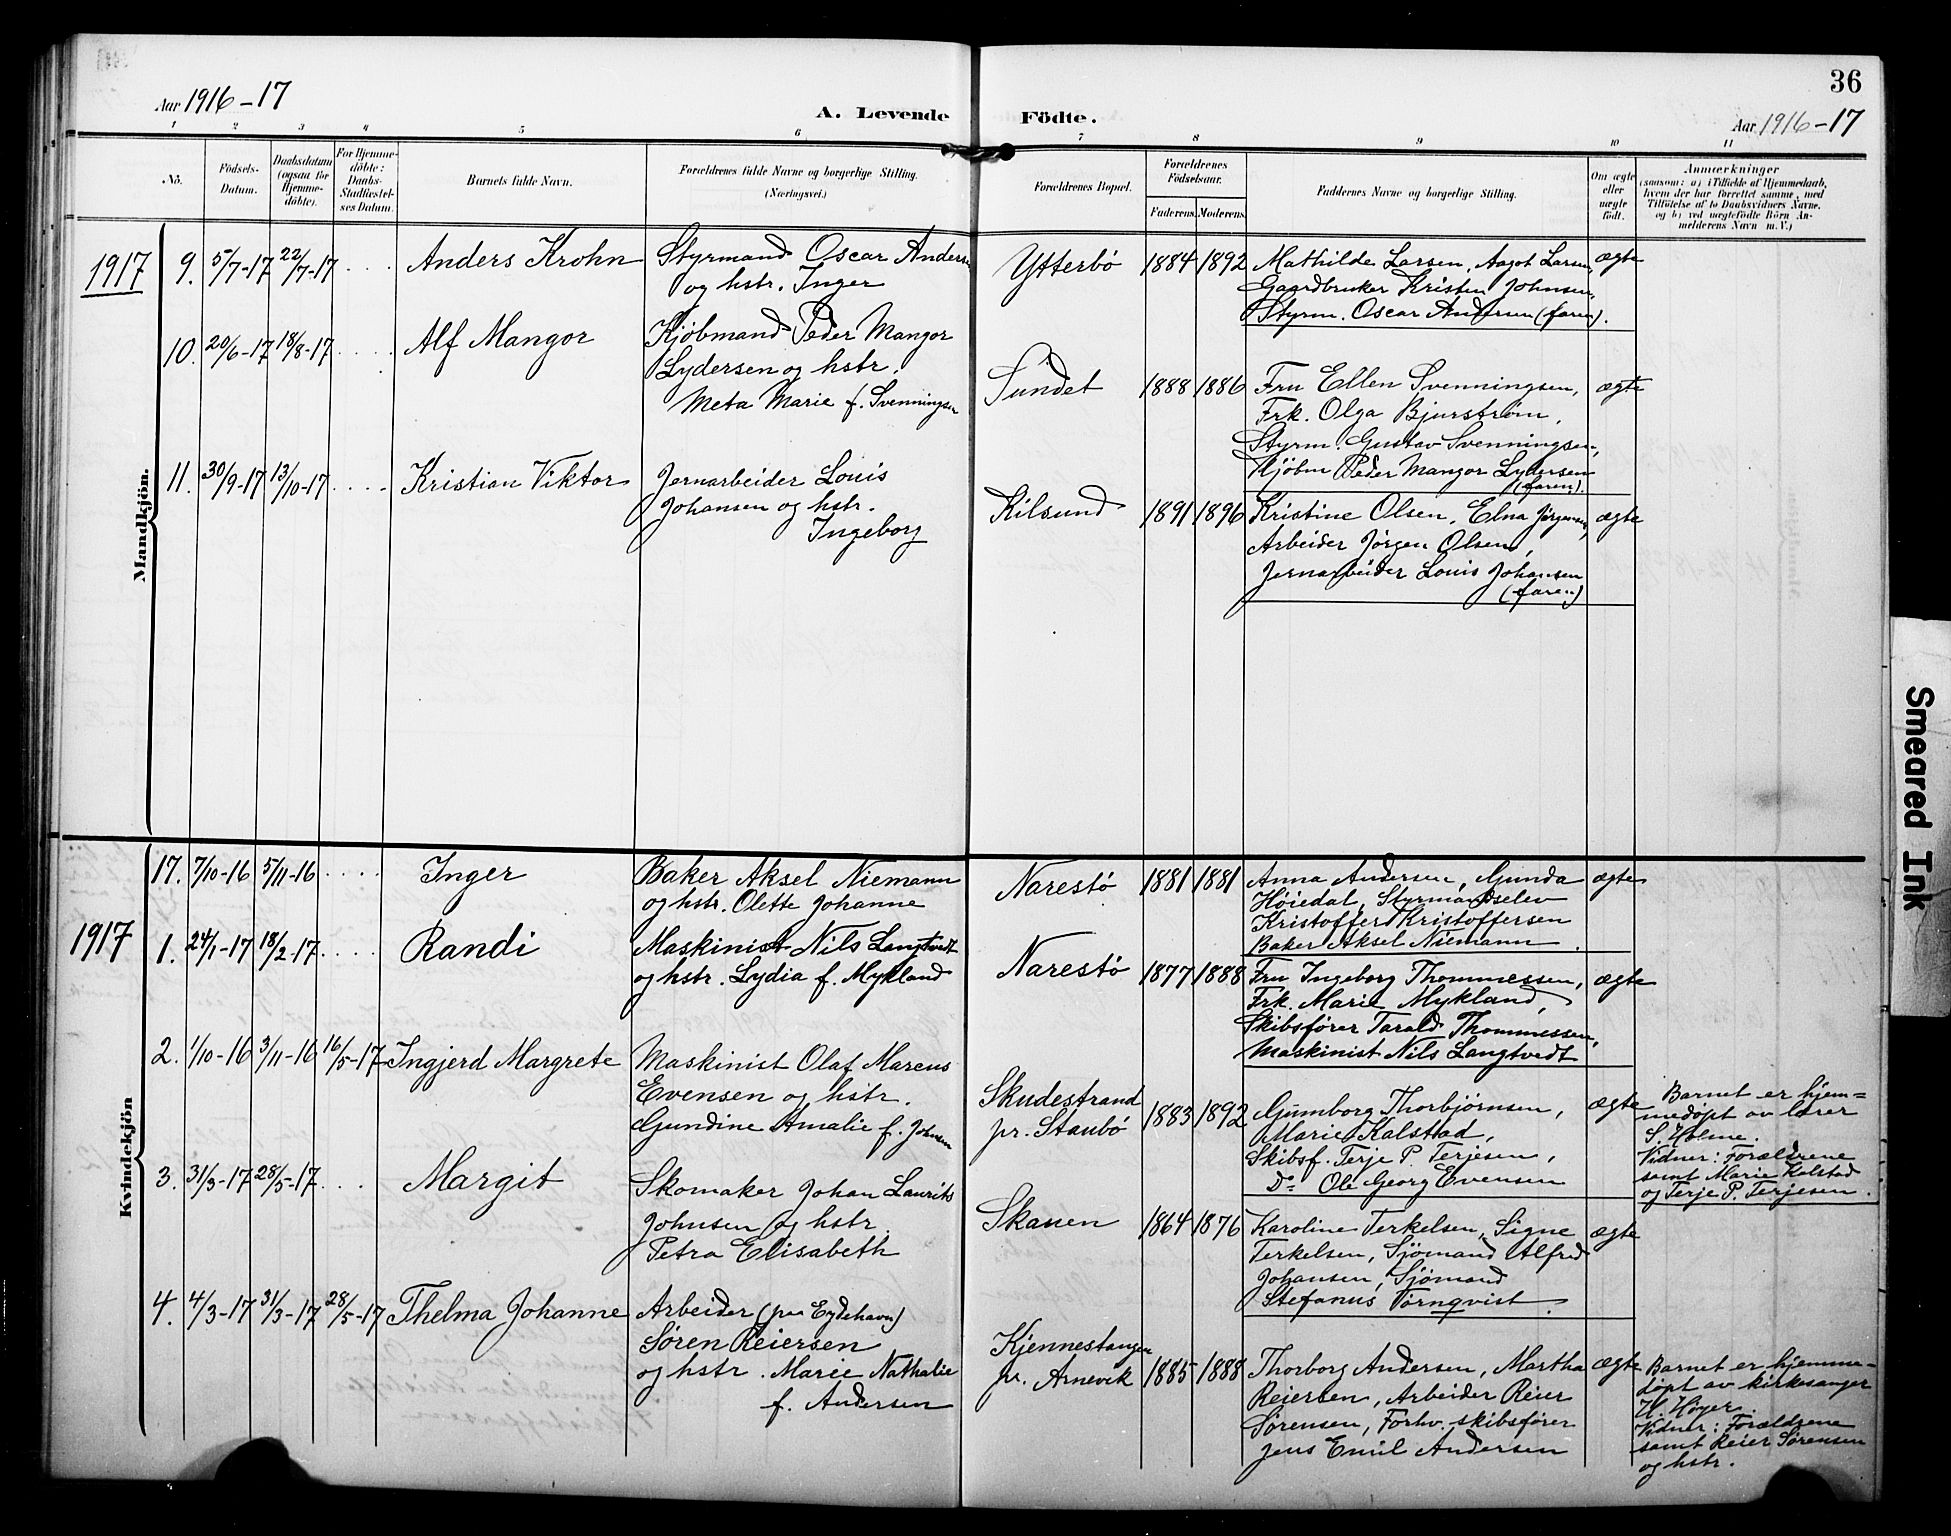 36
Aar 1916-17
A. Levende Födte.
Aar 1916-17
1 2 3 4 5 6 7 8 9 10 11
No.
Födsels-
Datum.
Daabsdatum
(ogsaa for
Hjemme-
döbte).
For Hjemme-
döbte:
Daabs-
Stadfæstel-
ses Datum.
Barnets fulde Navn.
Forældrenes fulde Navne og borgerlige Stilling.
(Næringsvei.)
Forældrenes Bopæl.
Forældrenes
Födselsaar.
Faderens. Moderens.
Faddernes Navne og borgerlige Stilling.
Om ægte
eller
uægte
født.
Anmærkninger
(saasom: a) i Tilfælde af Hjemmedaab,
hvem der har forrettet samme, med
Tilføielse af to Daabsvidners Navne.
og b) ved uægtefødte Börn An-
melderens Navn m. V.)
Mandkjön.
1917 9. 5/7-17 22/7-17 Anders Krohn
Styrmand Oscar Andersen
og hstr. Inger
Ytterbö 1884 1892
Mathilde Larsen, Aagot Larsen,
Gaardbruker Kristen Johnsen,
Styrm. Oscar Andersen (faren).
ægte
10. 20/6-17 18/8-17 Alf Mangor
Kjöbmand Peder Mangor
Lydersen og hstr.
Meta Marie f. Svenningsen
Sundet 1888 1886
Fru Ellen Svenningsen,
Frk. Olga Bjurström,
Styrm. Gustav Svenningsen,
Kjöbm Peder Mangor Lydersen
(faren).
ægte
11. 30/9-17 13/10-17 Kristian Viktor
Jernarbeider Louis
Johansen og hstr.
Ingeborg
Kilsund 1891 1896
Kristine Olsen, Elna Jörgensen,
Arbeider Jörgen Olsen,
Jernarbeider Louis Johansen
(faren)
ægte
Kvindekjön
17. 7/10-16 5/11-16 Inger
Baker Aksel Niemann
og hstr. Olette Johanne
Narestö 1881 1881
Anna Andersen, Gunda
Höiedal, Styrmandselev
Kristoffer Kristoffersen
Baker Aksel Niemann.
ægte
1917 1. 24/1-17 18/2-17 Randi
Maskinist Nils Langtvedt
og hstr. Lydia f. Mykland
Narestö 1877 1888
Fru Ingeborg Thommessen,
Frk. Marie Mykland,
Skibsförer Tarald Thommessen,
Maskinist Nils Langtvedt
ægte
2. 1/10-16 3/11-16 16/5-17 Ingjerd Margrete
Maskinist Olaf Marcus
Evensen og hstr.
Gundine Amalie f. Johnsen
Skudestrand
pr. Staubö
1883 1892
Gumborg Thorbjörnsen,
Marie Kalstad,
Skibsf. Terje P. Terjesen,
Do Ole Georg Evensen
ægte
Barnet er hjem=
medöpt av lærer
S. Holme.
Vidner: Forældrene
samt Marie Kalstad
og Terje P. Terjesen.
3. 31/3-17 28/5-17 Margit
Skomaker Johan Laurits
Johnsen og hstr.
Petra Elisabeth
Skauen 1864 1876
Karoline Terkelsen, Signe
Terkelsen, Sjömand Alfred
Johansen, Sjömand
Stefanus Törnqvist.
ægte
4. 4/3-17 31/3-17 28/5-17 Thelma Johanne
Arbeider (paa Eydehavn)
Sören Reiersen
og hstr. Marie Nathalie
f. Andersen
Kjennestangen
pr. Arnevik
1885 1888
Thorborg Andersen, Martha
Reiersen, Arbeider Reier
Sörensen, Forhv. skibsförer
Jens Emil Andersen
ægte
Barnet er hjemme-
döpt av kirkesanger
H. Höyer.
Vidner: Forældrene
samt Reier Sörensen
og hstr.
Smeared Ink